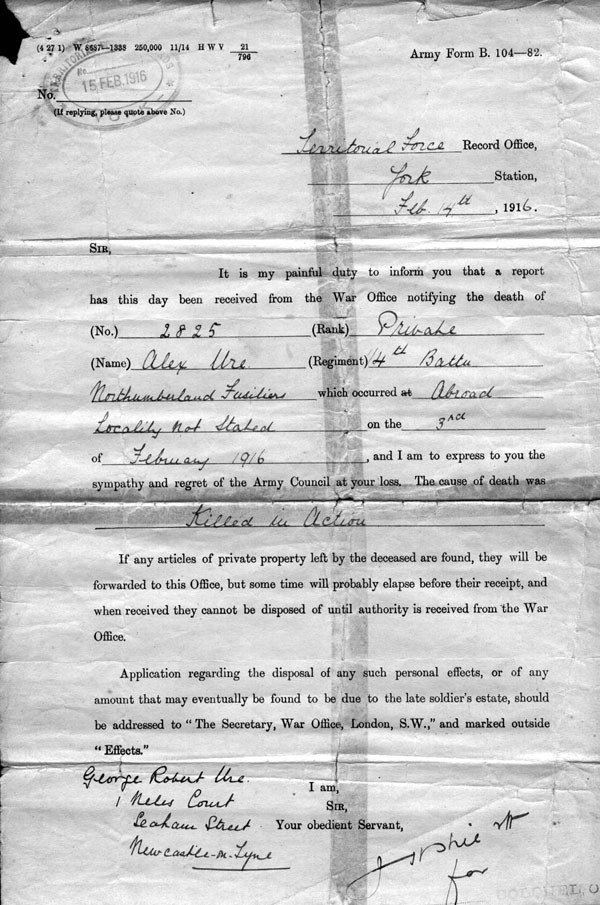 (4 27 1) W 8687—1338 250,000 11/14 H W V 21/796
Army Form B. 104—82.
15 FEB.1916
No.
(If replying, please quote above No.)
Territorial Force Record Office,
York Station,
Feb. 14th, 1916.
SIR,
It is my painful duty to inform you that a report
has this day been received from the War Office notifying the death of
(No.) 2825 (Rank) Private
(Name) Alex Ure (Regiment) 4th Battn
Northumberland Fusiliers which occurred at Abroad
Locality Not Stated on the 3rd
of February 1916, and I am to express to you the
sympathy and regret of the Army Council at your loss. The cause of death was
Killed in Action
If any articles of private property left by the deceased are found, they will be
forwarded to this Office, but some time will probably elapse before their receipt, and
when received they cannot be disposed of until authority is received from the War
Office.
Application regarding the disposal of any such personal effects, or of any
amount that may eventually be found to be due to the late soldier's estate, should
be addressed to “The Secretary, War Office, London, S.W.,” and marked outside
“Effects.”
George Robert Ure.
I am,
1 Court
SIR,
Seaham Street
Your obedient Servant,
Newcastle-on-Tyne
for